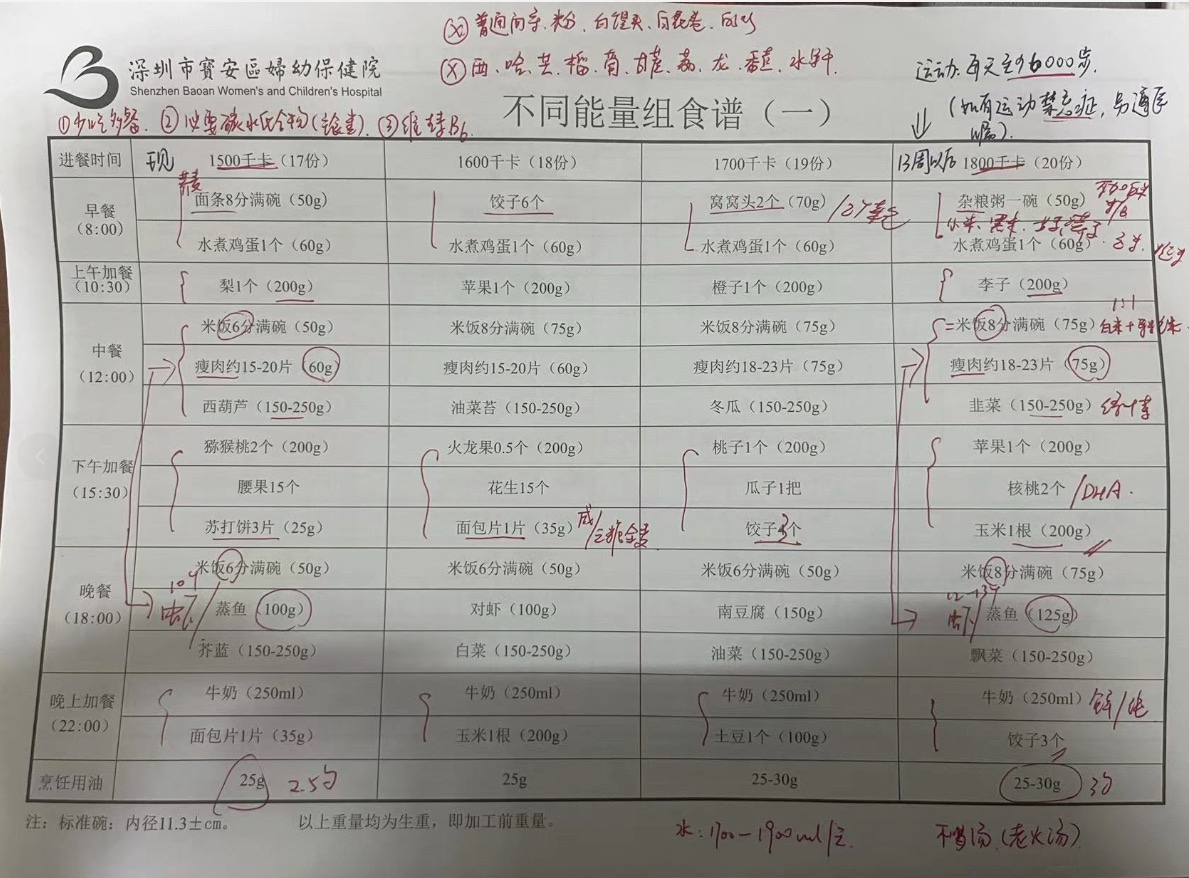 (X) 普通面条、粉、白馒头、白花卷、
(X) 西、哈、芒、榴、甘蔗、荔、龙、番
深圳市寶安區婦幼保健院
Shenzhen Baoan Women's and Children's Hospital
运动:每天至少6000步.
(如有运动禁忌症,另遵医嘱).
①少吃多餐. ②必要碳水化合物(主食) ③维生素B6
不同能量组食谱（一）
进餐时间 现 1500千卡（17份） 1600千卡（18份） 1700千卡（19份） 13周以后 1800千卡（20份）
荞麦
早餐（8:00） 面条8分满碗（50g） 饺子6个 窝窝头2个（70g） 杂粮粥一碗（50g）
小米、黑米、
水煮鸡蛋1个（60g） 水煮鸡蛋1个（60g） 水煮鸡蛋1个（60g） 水煮鸡蛋1个（60g）
上午加餐（10:30） 梨1个（200g） 苹果1个（200g） 橙子1个（200g） 李子（200g）
1:1
中餐（12:00） 米饭6分满碗（50g） 米饭8分满碗（75g） 米饭8分满碗（75g） =米饭8分满碗（75g） 白米+
瘦肉约15-20片（60g） 瘦肉约15-20片（60g） 瘦肉约18-23片（75g） 瘦肉约18-23片（75g）
西葫芦（150-250g） 油菜苔（150-250g） 冬瓜（150-250g） 韭菜（150-250g） 绿叶菜
下午加餐（15:30） 猕猴桃2个（200g） 火龙果0.5个（200g） 桃子1个（200g） 苹果1个（200g）
腰果15个 花生15个 瓜子1把 核桃2个 /DHA.
苏打饼3片（25g） 面包片1片（35g） 咸/无糖全麦 饺子3个 玉米1根（200g）
晚餐（18:00） 米饭6分满碗（50g） 米饭6分满碗（50g） 米饭6分满碗（50g） 米饭8分满碗（75g）
10个 12-13个
虾/蒸鱼（100g） 对虾（100g） 南豆腐（150g） 虾/蒸鱼（125g）
芥蓝（150-250g） 白菜（150-250g） 油菜（150-250g） 瓢菜（150-250g）
晚上加餐（22:00） 牛奶（250ml） 牛奶（250ml） 牛奶（250ml） 牛奶（250ml） 鲜/纯
面包片1片（35g） 玉米1根（200g） 土豆1个（100g） 饺子3个
烹饪用油 25g 2.5勺 25g 25-30g 25-30g 3勺
注：标准碗：内径11.3±cm。 以上重量均为生重，即加工前重量。
水:1700-1900ml/天. 不喝汤.(老火汤)